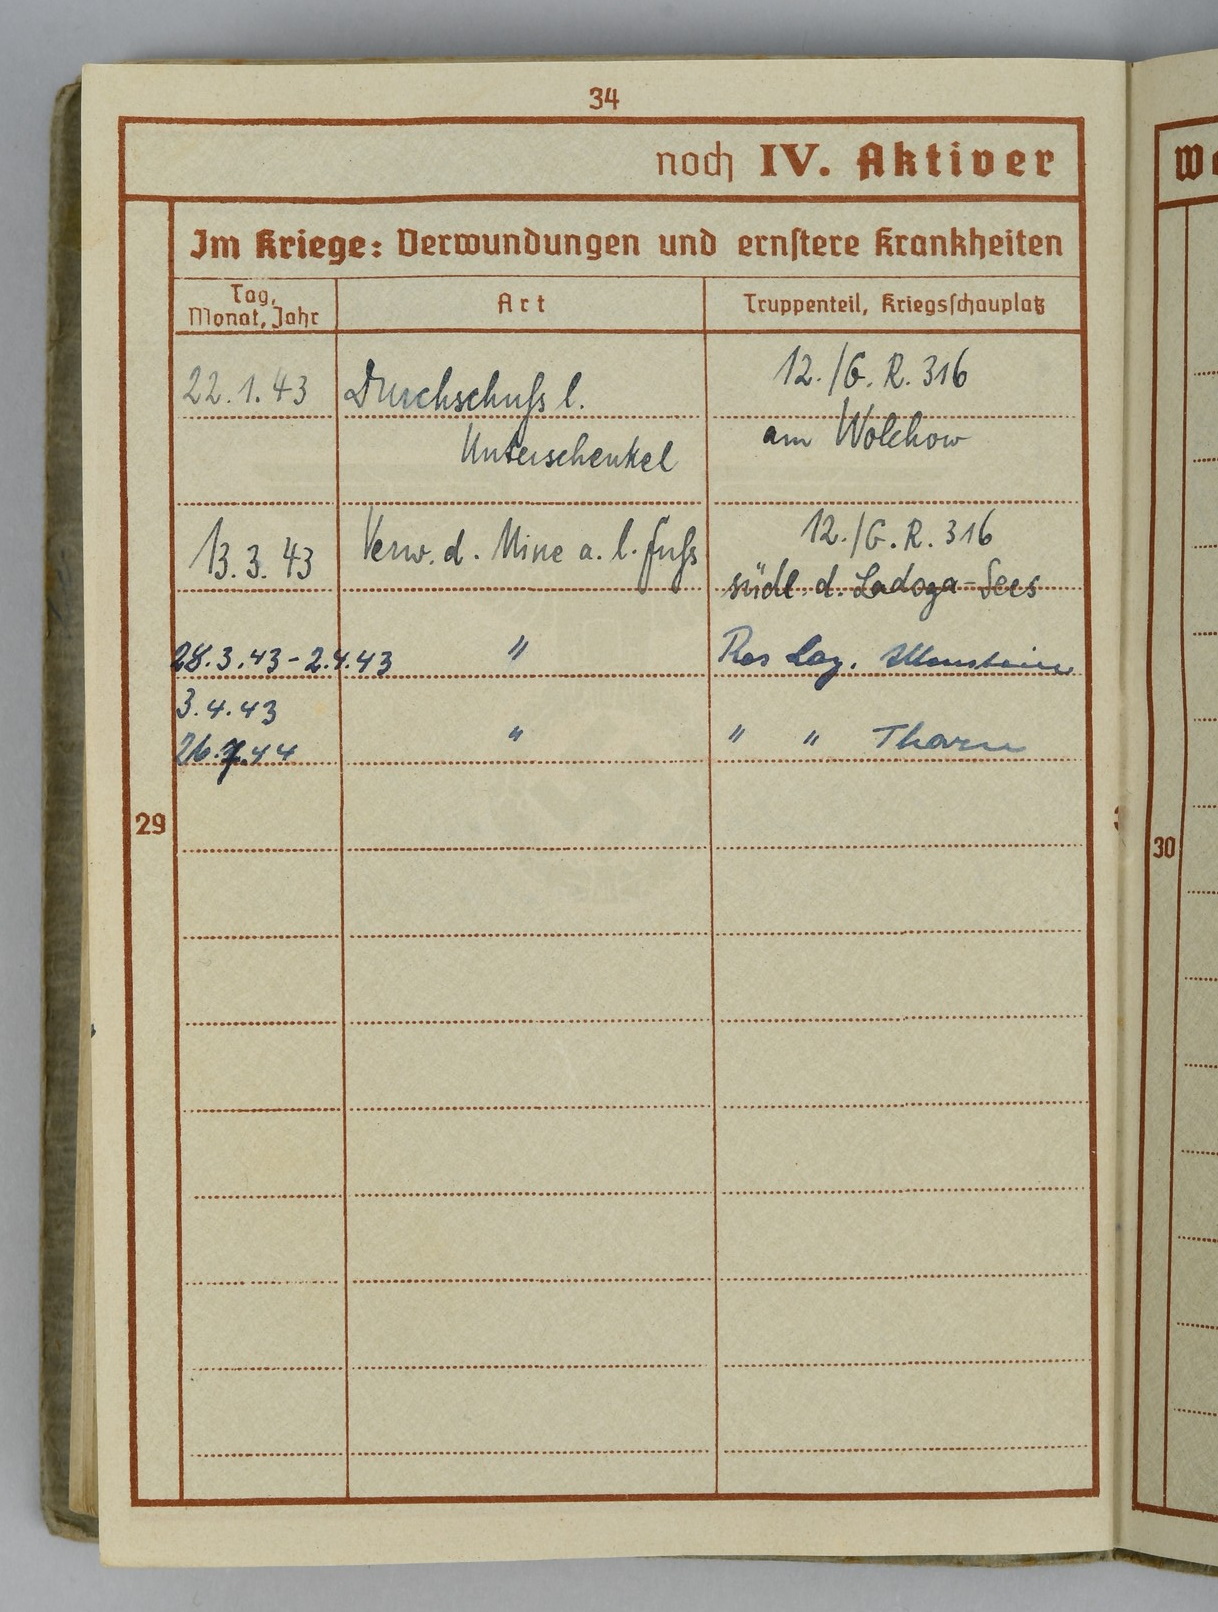 34
noch IV. Aktiver
Im Kriege: Verwundungen und ernstere Krankheiten
Tag,
Monat, Jahr
Art
Truppenteil, Kriegsschauplatz
22.1.43 Durchschuß l. 12./G.R. 316
Unterschenkel am Wolchow
13.3.43 Verw. d. Mine a. l. Fuß 12./G.R. 316
südl. d. Ladoga-Sees
28.3.43-2.4.43 " Res Laz. Allenstein
3.4.43
26. .44 " " " Thorn
29
30